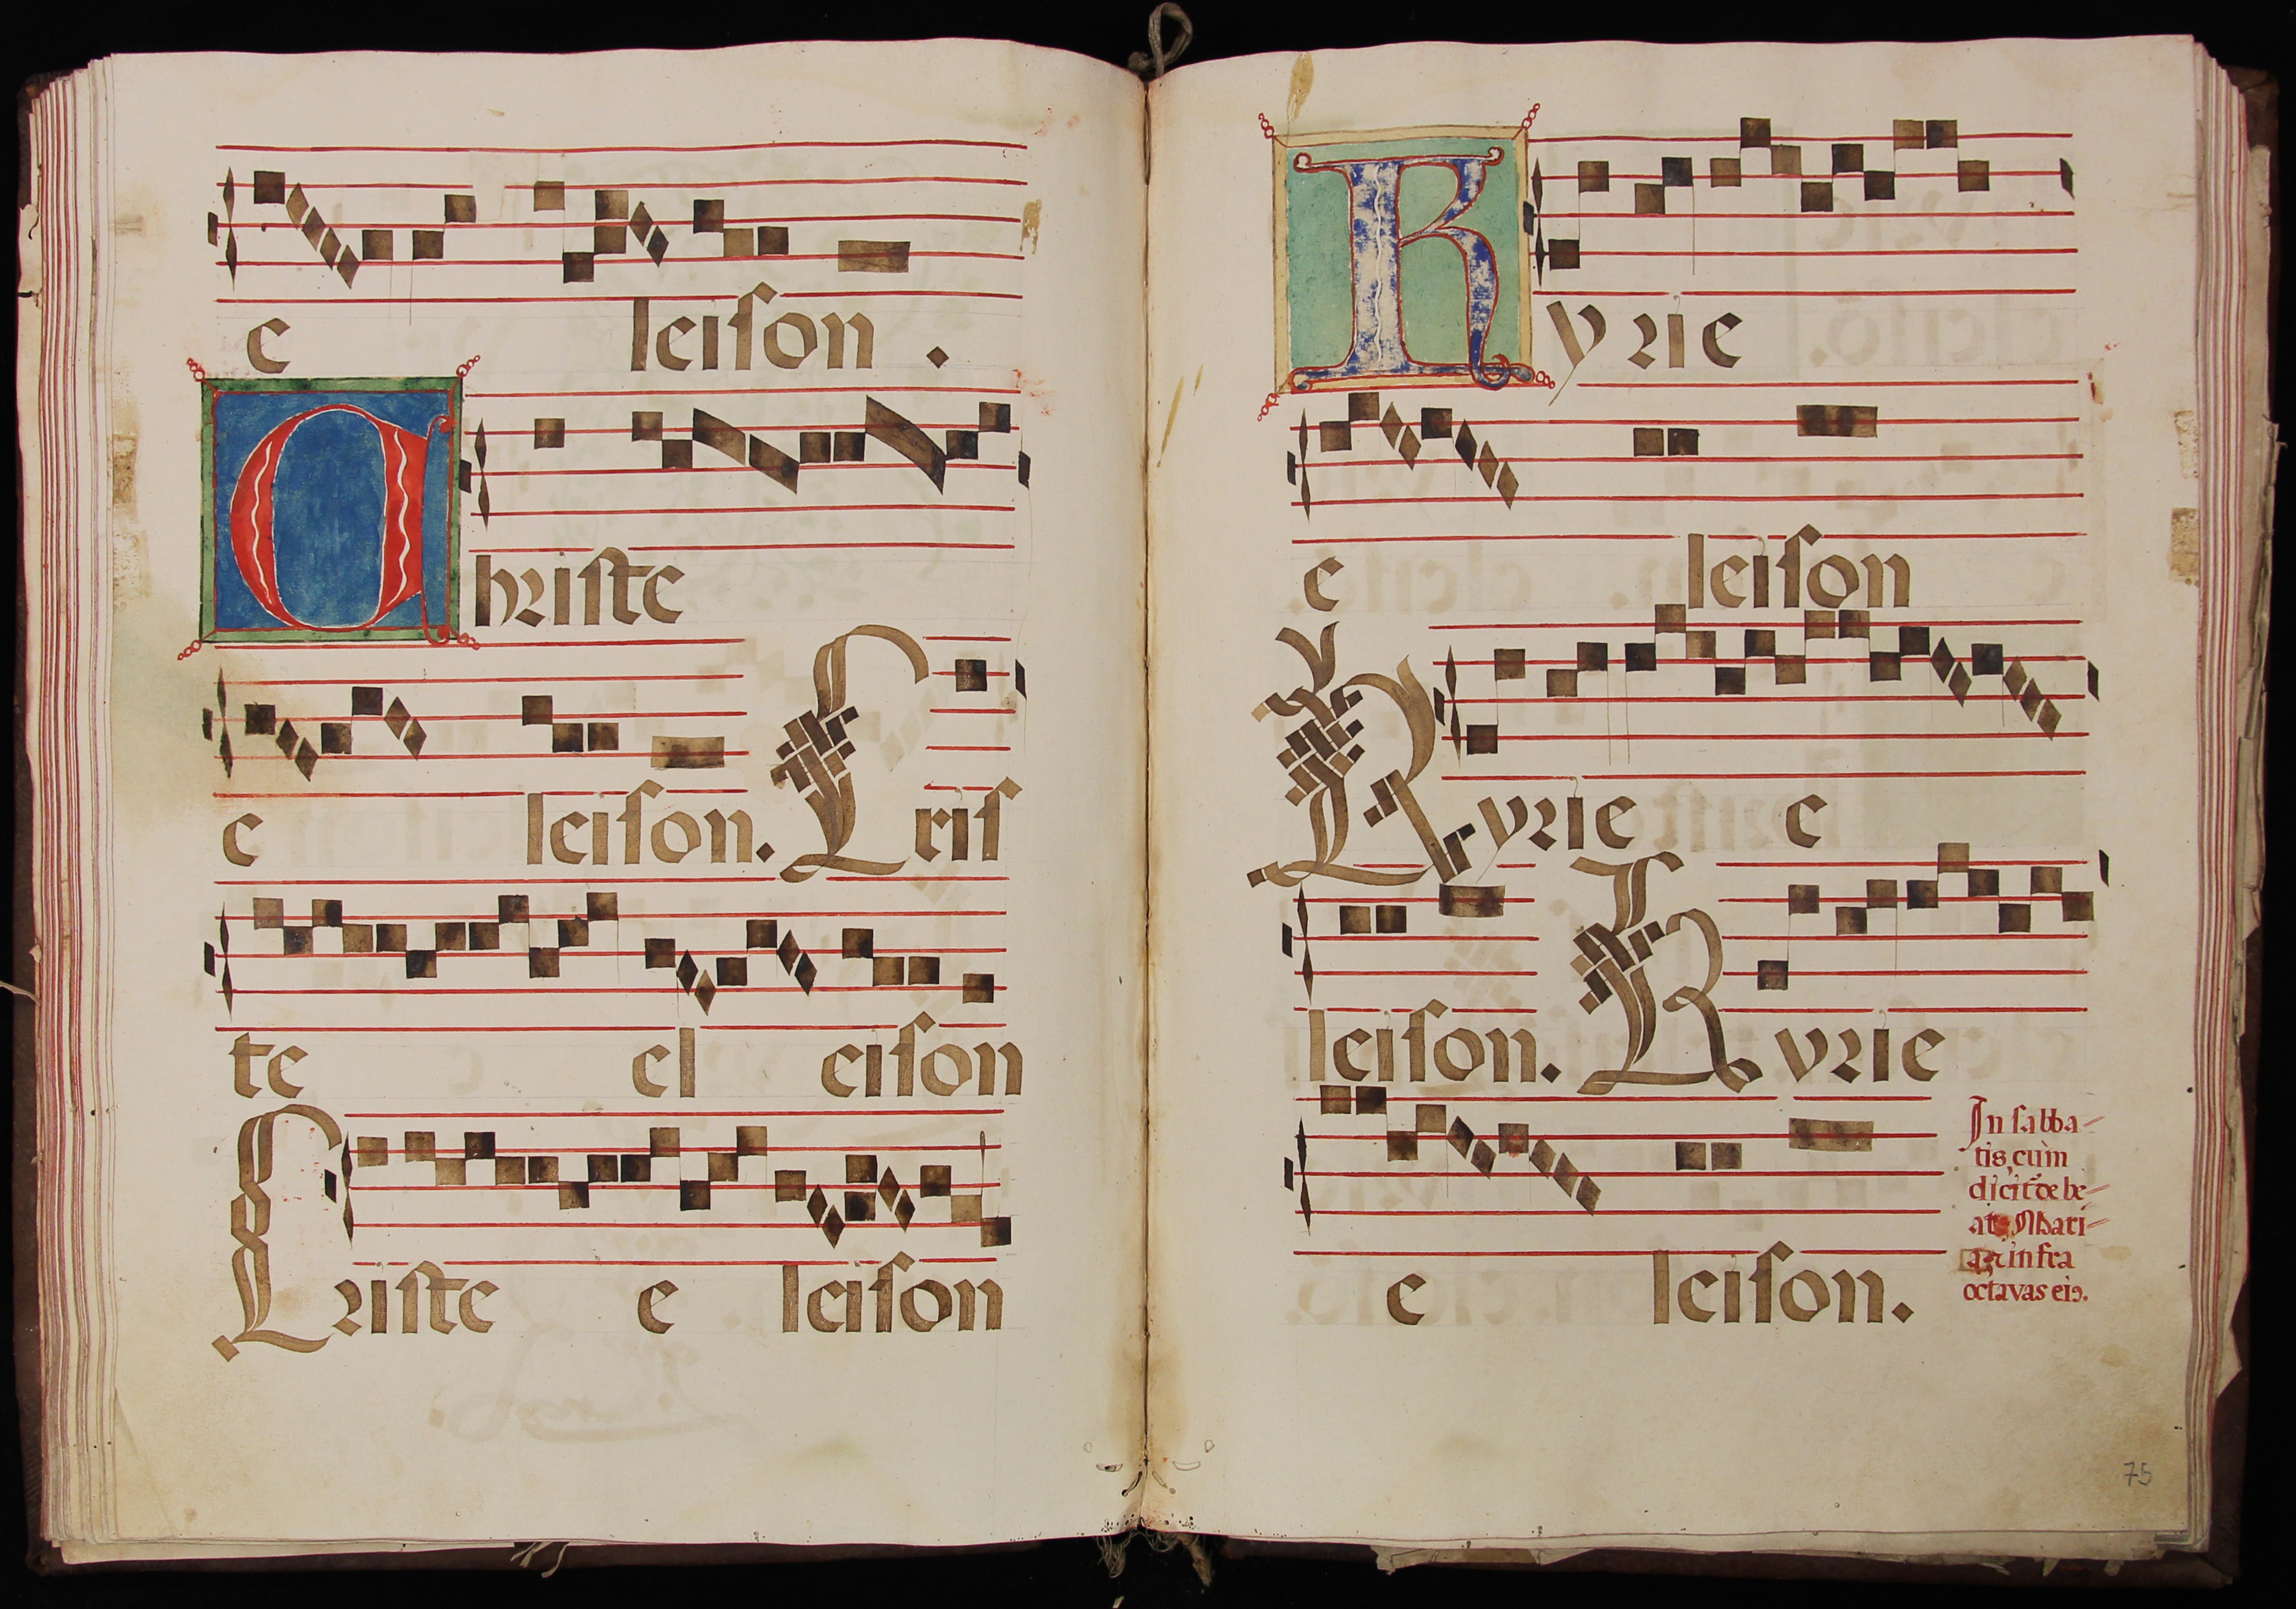 e leison.
Christe
e leison. Cris
te el eison
Criste e leison
Kyrie
e leison
Kyrie e
leison. Kyrie
e leison.
In sabba-
tis, cum
dicit̃ de be-
at Mari-
in fra
octavas eiꝰ.
75